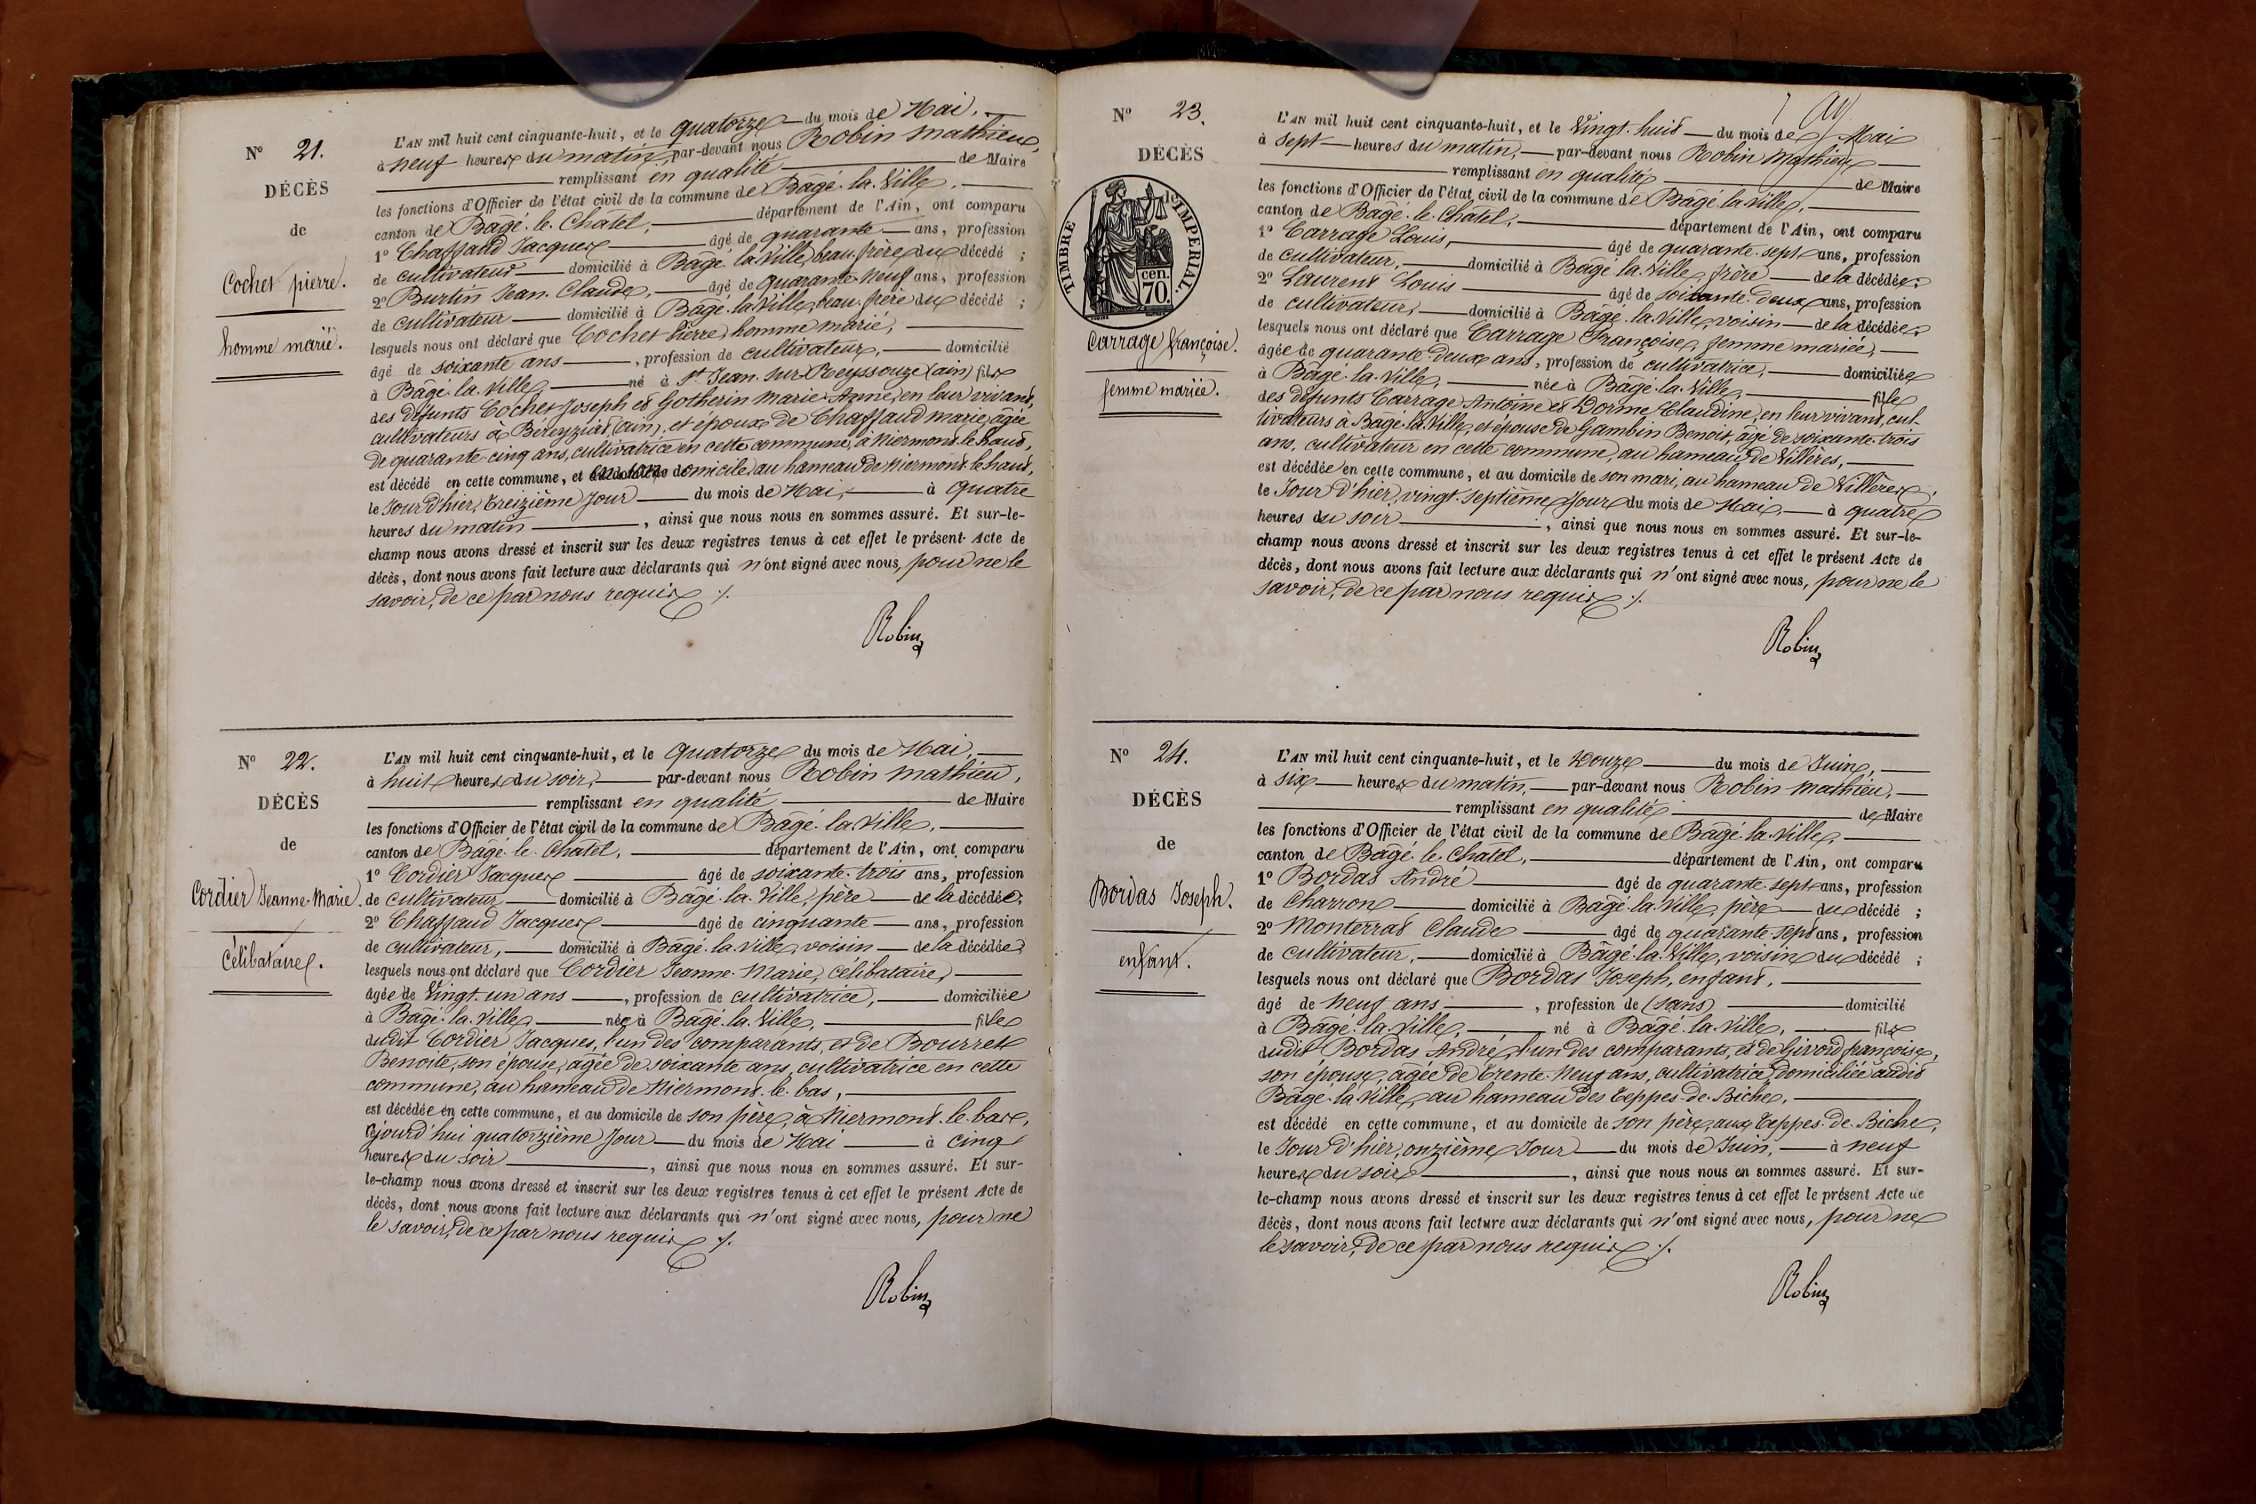 N° 21.
DÉCÈS
de
Cochet pierre.
homme marié.
L'AN mil huit cent cinquante-huit, et le quatorze du mois de Mai,
à neuf heures du matin, par-devant nous Robin Mathieu,
remplissant en qualité de Maire
les fonctions d'Officier de l'état civil de la commune de Bâgé-la-Ville,
canton de Bâgé-le-Châtel, département de l'Ain, ont comparu
1° Chaffaud Jacques âgé de quarante ans, profession
de cultivateur domicilié à Bâgé-la-Ville, beau-frère du décédé ;
2° Burtin Jean-Claude, âgé de quarante-neuf ans, profession
de cultivateur domicilié à Bâgé-la-Ville, beau-frère du décédé ;
lesquels nous ont déclaré que Cochet Pierre, homme marié,
âgé de soixante ans, profession de cultivateur, domicilié
à Bâgé-la-Ville, né à St Jean-sur-Reyssouze (ain) fils
des défunts Cochet Joseph et Gotherin Marie-Anne, en leur vivant,
cultivateurs à Béreyziat (ain), et époux de Chaffaud Marie, âgée
de quarante-cinq ans, cultivatrice en cette commune, à Niermont-le-haut,
est décédé en cette commune, et domicile au hameau de Niermont-le-haut,
le Jour d'hier, treizième Jour du mois de Mai, à quatre
heures du matin, ainsi que nous nous en sommes assuré. Et sur-le-
champ nous avons dressé et inscrit sur les deux registres tenus à cet effet le présent Acte de
décès, dont nous avons fait lecture aux déclarants qui n'ont signé avec nous, pour ne le
savoir, de ce par nous requis ./.
Robin
N° 22.
DÉCÈS
de
Cordier Jeanne-Marie.
Célibataire.
L'AN mil huit cent cinquante-huit, et le quatorze du mois de Mai,
à huit heures du soir, par-devant nous Robin Mathieu,
remplissant en qualité de Maire
les fonctions d'Officier de l'état civil de la commune de Bâgé-la-Ville,
canton de Bâgé-le-Châtel, département de l'Ain, ont comparu
1° Cordier Jacques âgé de soixante-trois ans, profession
de cultivateur domicilié à Bâgé-la-Ville, père de la décédée ;
2° Chaffaud Jacques âgé de cinquante ans, profession
de cultivateur, domicilié à Bâgé-la-Ville, voisin de la décédée
lesquels nous ont déclaré que Cordier Jeanne-Marie, célibataire,
âgée de vingt-un ans, profession de cultivatrice, domiciliée
à Bâgé-la-Ville, née à Bâgé-la-Ville, fille
dudit Cordier Jacques, l'un des comparants, et de Bourret
Benoite, son épouse, âgée de soixante ans, cultivatrice en cette
commune, au hameau de Niermont-le-bas,
est décédée en cette commune, et au domicile de son père, à Niermont-le-bas,
ajourd'hui quatorzième Jour du mois de Mai à cinq
heures du soir, ainsi que nous nous en sommes assuré. Et sur-
le-champ nous avons dressé et inscrit sur les deux registres tenus à cet effet le présent Acte de
décès, dont nous avons fait lecture aux déclarants qui n'ont signé avec nous, pour ne
le savoir, de ce par nous requis ./.
Robin
N° 23.
DÉCÈS
TIMBRE IMPERIAL.
cen.
70.
Carrage françoise.
femme mariée.
L'AN mil huit cent cinquante-huit, et le vingt-huit du mois de Mai
à sept heures du matin, par-devant nous Robin Mathieu,
remplissant en qualité de Maire
les fonctions d'Officier de l'état civil de la commune de Bâgé-la-Ville,
canton de Bâgé-le-Châtel, département de l'Ain, ont comparu
1° Carrage Louis, âgé de quarante-sept ans, profession
de cultivateur, domicilié à Bâgé-la-Ville, frère de la décédée ;
2° Laurent Louis âgé de soixante-deux ans, profession
de cultivateur, domicilié à Bâgé-la-Ville, voisin de la décédée ;
lesquels nous ont déclaré que Carrage Françoise, femme mariée,
âgée de quarante-deux ans, profession de cultivatrice, domiciliée
à Bâgé-la-Ville, née à Bâgé-la-Ville, fille
des défunts Carrage Antoine et Dorme Claudine, en leur vivant, cul-
tivateurs à Bâgé-la-Ville, et épouse de Gambin Benoit, âgé de soixante-trois
ans, cultivateur en cette commune, au hameau de Villères,
est décédée en cette commune, et au domicile de son mari, au hameau de Villères,
le Jour d'hier, vingt-septième Jour du mois de Mai, à quatre
heures du soir, ainsi que nous nous en sommes assuré. Et sur-le-
champ nous avons dressé et inscrit sur les deux registres tenus à cet effet le présent Acte de
décès, dont nous avons fait lecture aux déclarants qui n'ont signé avec nous, pour ne le
savoir, de ce par nous requis ./.
Robin
N° 24.
DÉCÈS
de
Bordas Joseph.
enfant.
L'AN mil huit cent cinquante-huit, et le Douze du mois de Juin,
à six heures du matin, par-devant nous Robin Mathieu,
remplissant en qualité de Maire
les fonctions d'Officier de l'état civil de la commune de Bâgé-la-Ville,
canton de Bâgé-le-Châtel, département de l'Ain, ont comparu
1° Bordas André âgé de quarante-sept ans, profession
de Charron domicilié à Bâgé-la-Ville, père du décédé ;
2° Monterrat Claude âgé de quarante-sept ans, profession
de cultivateur, domicilié à Bâgé-la-Ville, voisin du décédé ;
lesquels nous ont déclaré que Bordas Joseph, enfant,
âgé de neuf ans, profession de (sans) domicilié
à Bâgé-la-Ville, né à Bâgé-la-Ville, fils
dudit Bordas André, l'un des comparants, et de Givord françoise,
son épouse, âgée de trente-neuf ans, cultivatrice, domiciliée audit
Bâgé-la-Ville, au hameau des Teppes-de-Biche,
est décédé en cette commune, et au domicile de son père, aux Teppes-de-Biche,
le Jour d'hier, onzième Jour du mois de Juin, à neuf
heures du soir, ainsi que nous nous en sommes assuré. Et sur-
le-champ nous avons dressé et inscrit sur les deux registres tenus à cet effet le présent Acte de
décès, dont nous avons fait lecture aux déclarants qui n'ont signé avec nous, pour ne
le savoir, de ce par nous requis ./.
Robin